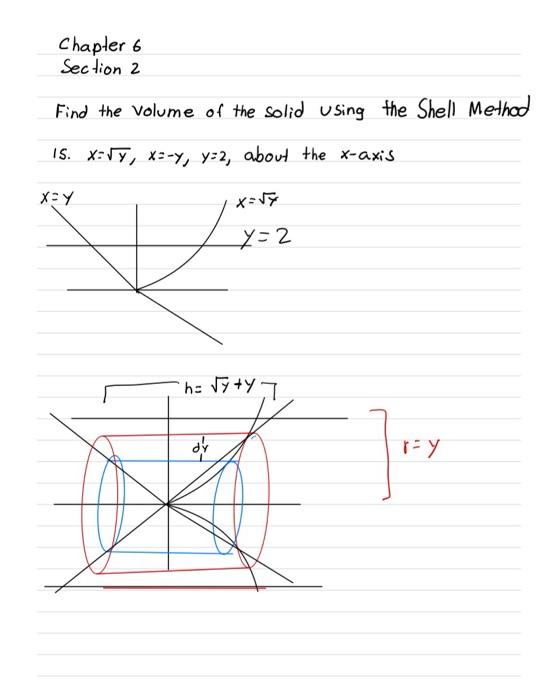 Chapter 6
Section 2
Find the Volume of the solid using the Shell Method
15. x=√y, x=-y, y=2, about the x-axis
x=y
x=√y
y=2
h= √y+y
dy
r=y